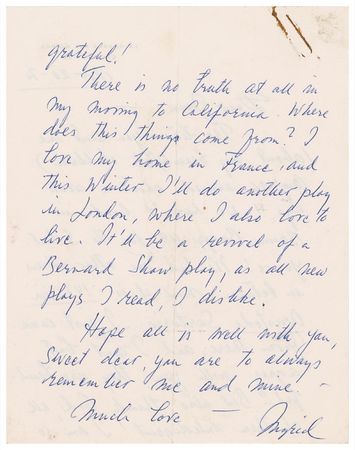 grateful!
There is no truth at all in
my moving to California. Where
does this things come from? I
love my home in France, and
this Winter I'll do another play
in London, where I also love to
live. It'll be a revival of a
Bernard Shaw play, as all new
plays I read, I dislike.
Hope all is well with you,
sweet dear, you are to always
remember me and mine –
Much love — Ingrid